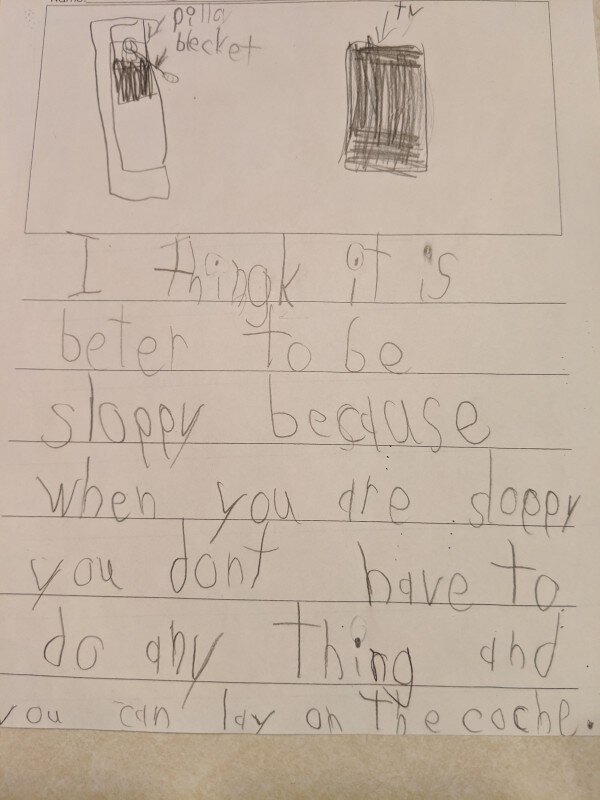 Name:
pilla
blecket
tv
I thingk it is
beter to be
sloppy because
when you are sloppy
you dont have to
do any thing and
you can lay on the coche.